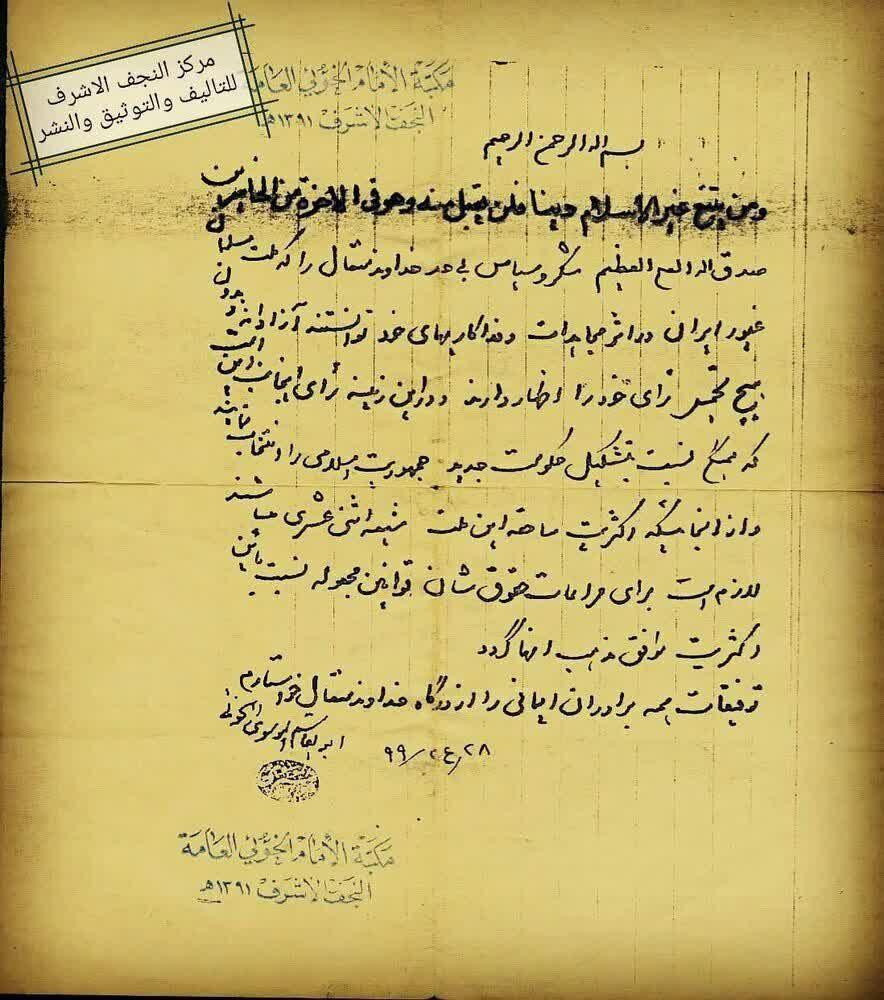 مركز النجف الاشرف
للتاليف والتوثيق والنشر
مكتبة الأمام الخوئي العامة
النجف الاشرف ١٣٩١هـ
بسم الله الرحمن الرحیم
ومن یبتغ غیر الاسلام دینا فلن یقبل منه وهو فی الاخرة من الخاسرین
صدق الله العلی العظیم شکر و سپاس بی حد خداوند متعال را که ملت مسلمان
غیور ایران در اثر مجاهدات و فداکاریهای خود توانستند آزادانه و بدون
هیچ تحمیل رأی خود را اظهار دارند و در این زمینه رأی اینجانب این است
که همگی نسبت بتشکیل حکومت جدید جمهوریت اسلامی را انتخاب نمایند
و از آنجائیکه اکثریت ساحقه این ملت شیعه اثنی عشری میباشند
لازم است برای مراعات حقوق شان قوانین مجعوله نسبت باین
اکثریت موافق مذهب انها گردد
توفیقات همه برادران ایمانی را از درگاه خداوند متعال خواستارم
ابوالقاسم الموسوی الخوئی
٢٨/ع٢/٩٩
مكتبة الأمام الخوئي العامة
النجف الاشرف ١٣٩١هـ